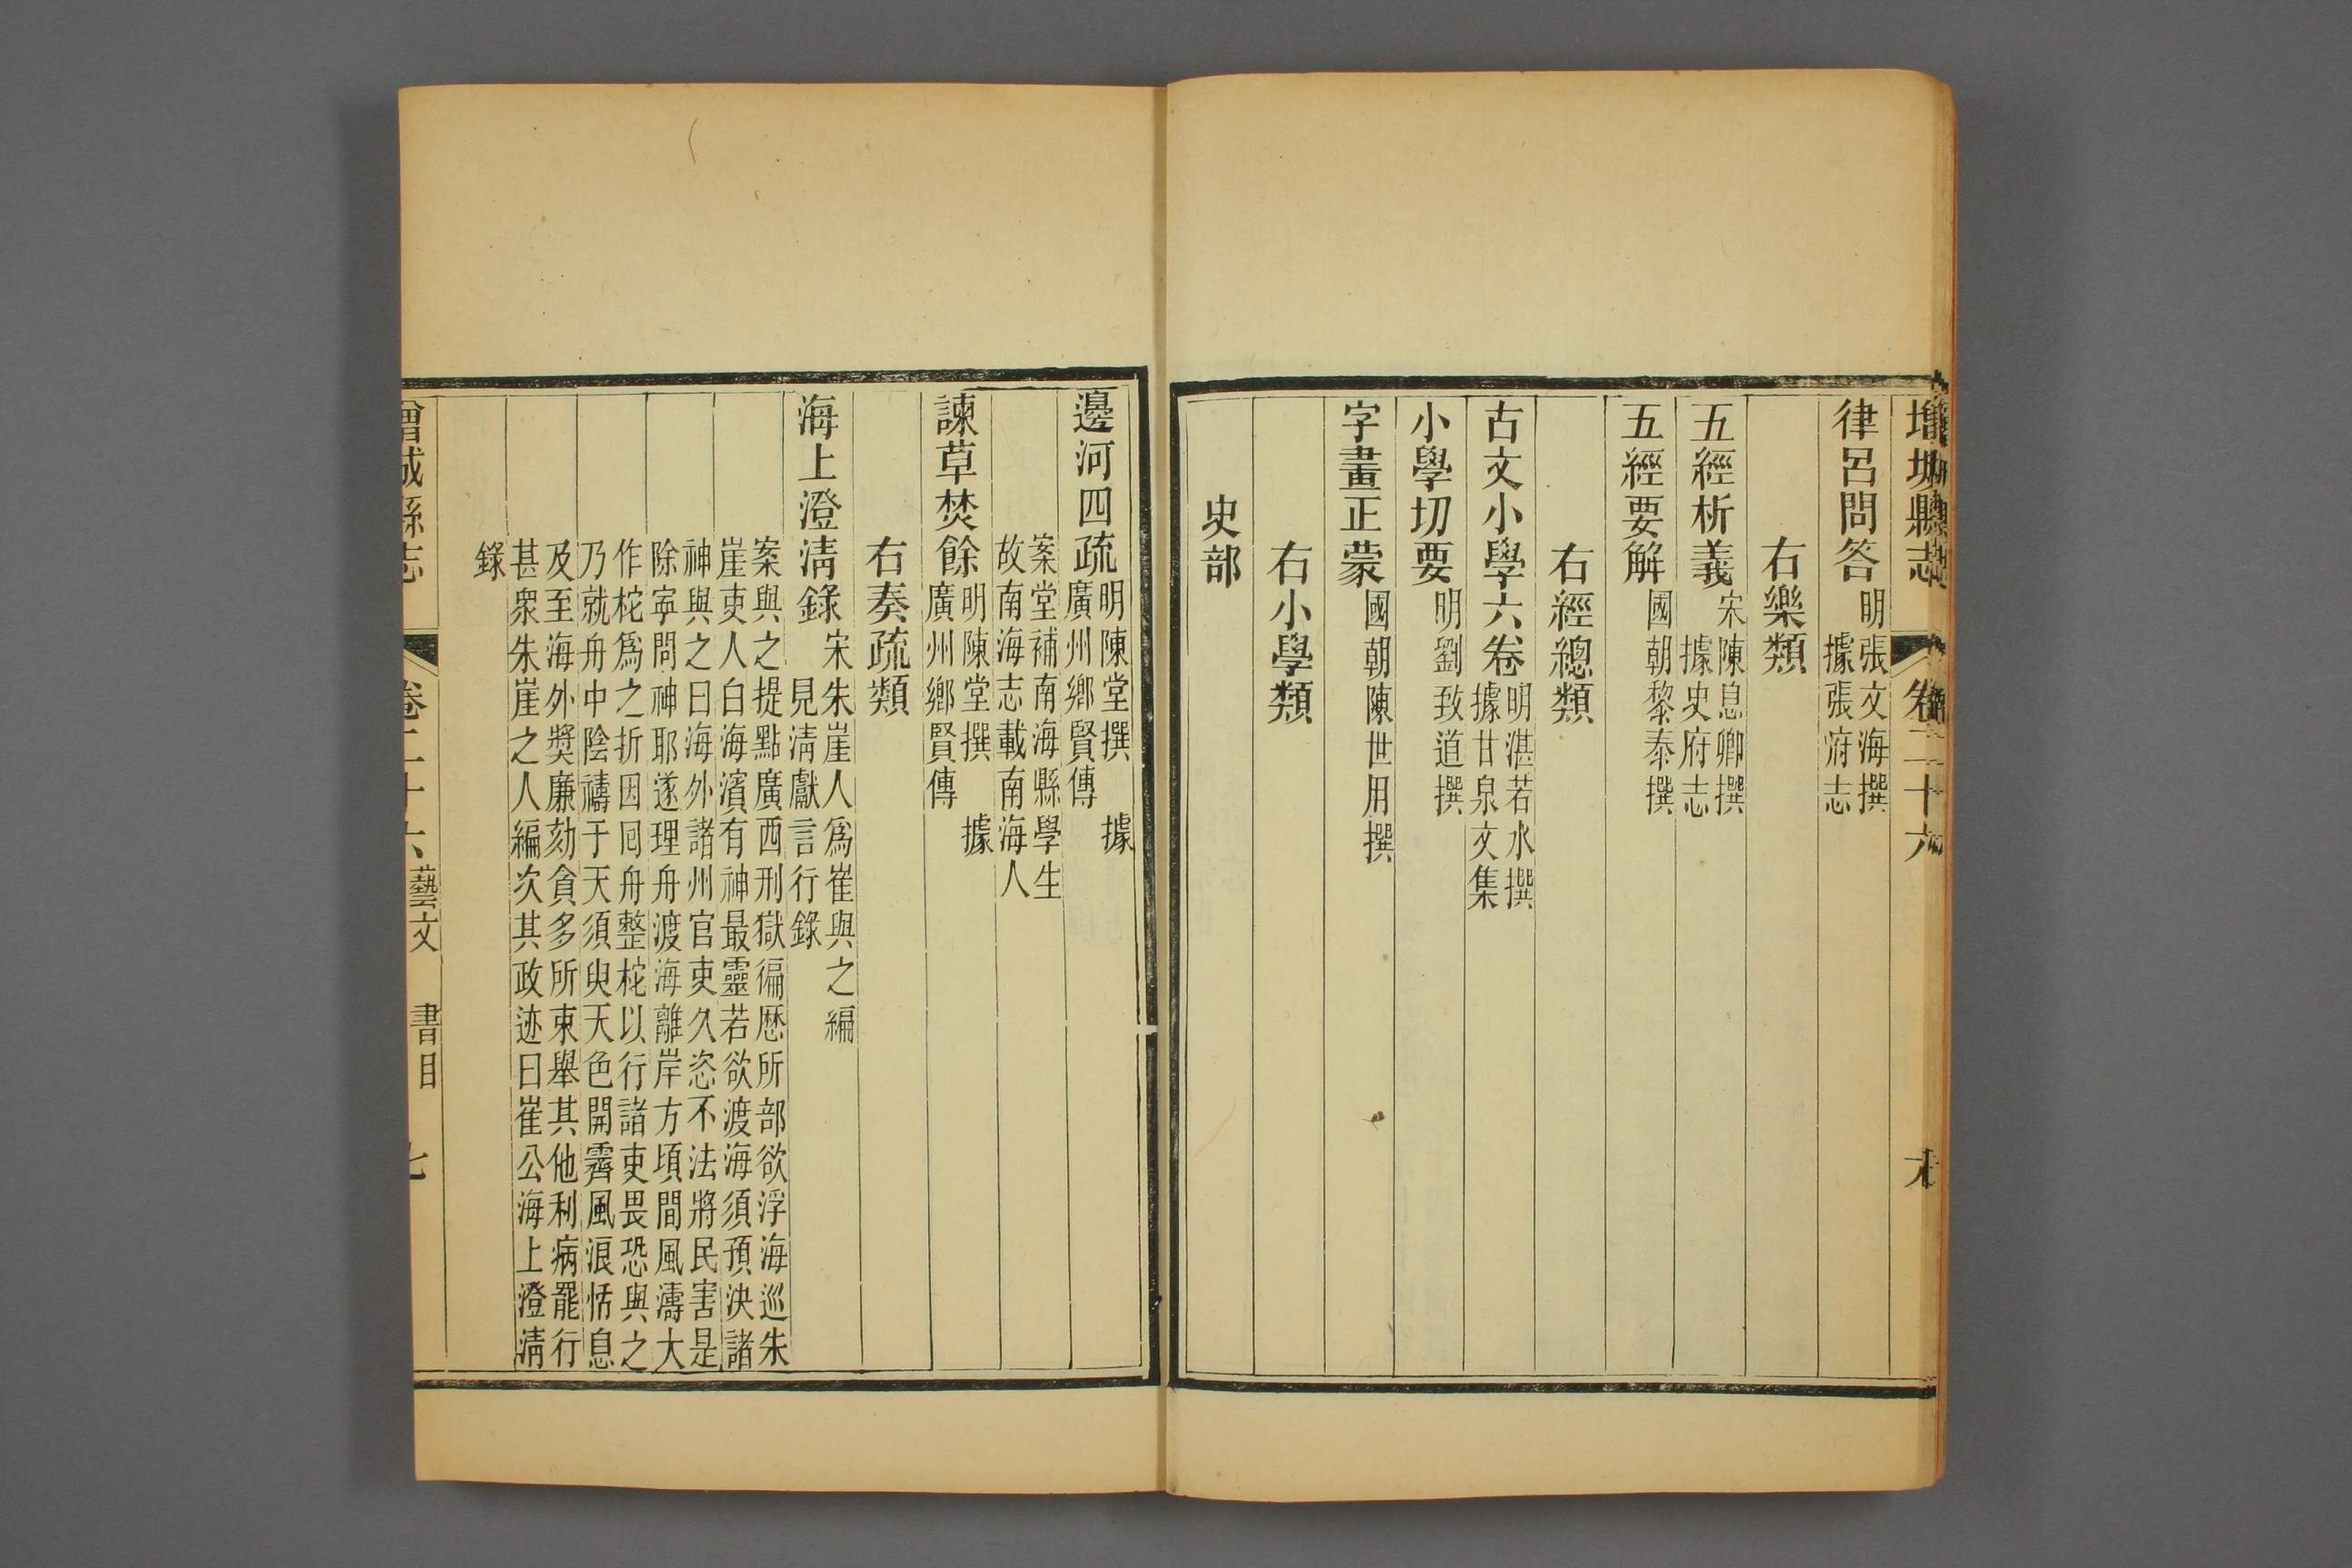 增城縣志
卷二十六
律呂問答明張文海撰
據張府志
右樂類
五經析義宋陳息卿撰
據史府志
五經要解國朝黎泰撰
右經總類
古文小學六卷明湛若水撰
據甘泉文集
小學切要明劉致道撰
字畫正蒙國朝陳世用撰
右小學類
史部
邊河四疏明陳堂撰 據
廣州鄉賢傳
案堂補南海縣學生
故南海志載南海人
諫草焚餘明陳堂撰 據
廣州鄉賢傳
右奏疏類
海上澄淸錄宋朱崖人爲崔與之編
見淸獻言行錄
案與之提點廣西刑獄徧歷所部欲浮海巡朱
崖吏人白海濱有神最靈若欲渡海須預決諸
神與之曰海外諸州官吏久恣不法將民害是
除寧問神耶遂理舟渡海離岸方頃間風濤大
作柁爲之折因囘舟整柁以行諸吏畏恐與之
乃就舟中陰禱于天須臾天色開霽風浪恬息
及至海外奬廉劾貪多所東舉其他利病罷行
甚衆朱崖之人編次其政迹曰崔公海上澄淸
錄
增城縣志
卷二十六
藝文 書目
七